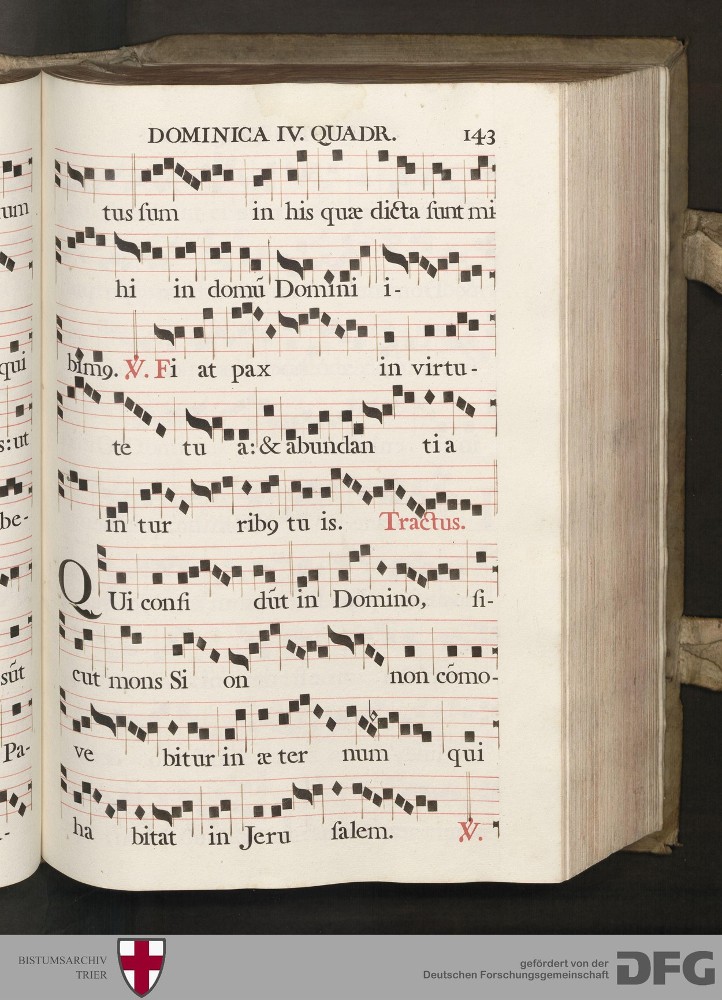 DOMINICA IV. QUADR. 143
tus ſum in his quæ dicta ſunt mi-
hi in domū Domini i-
bimꝰ. ℣. Fi at pax in virtu-
te tu a: & abundan ti a
in tur ribꝰ tu is. Tractus.
QUi confi dūt in Domino, ſi-
cut mons Si on non cōmo-
ve bitur in æ ter num qui
ha bitat in Jeru ſalem. ℣.
um
qui
s: ut
be-
sūt
Pa-
BISTUMSARCHIV
TRIER
gefördert von der
Deutschen Forschungsgemeinschaft
DFG